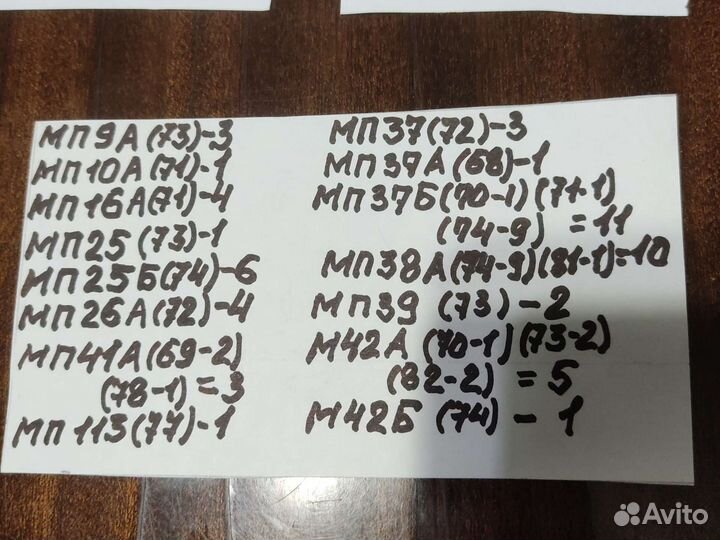 МП9А(73)-3
МП10А(71)-1
МП16А(71)-4
МП25(73)-1
МП25Б(74)-6
МП26А(72)-4
МП41А(69-2)
(78-1)=3
МП113(77)-1
МП37(72)-3
МП37А(68)-1
МП37Б(70-1)(71-1)
(74-9)=11
МП38А(74-9)(81-1)=10
МП39(73)-2
М42А(70-1)(73-2)
(82-2)=5
М42Б(74)-1
Avito